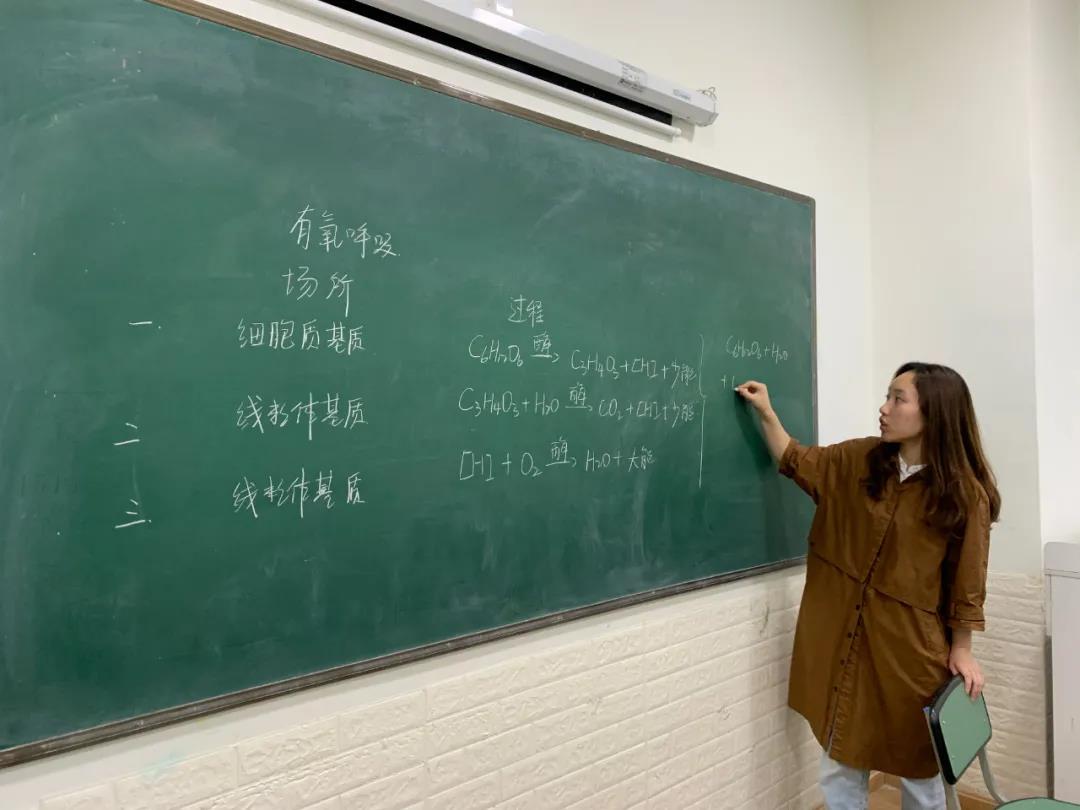 有氧呼吸
场所
过程
一. 细胞质基质 C6H12O6 酶→ C3H4O3+[H]+少能
二 线粒体基质 C3H4O3+H2O 酶→ CO2+[H]+少能
三. 线粒体基质 [H]+O2 酶→ H2O+大能
C6H12O6+H2O
+